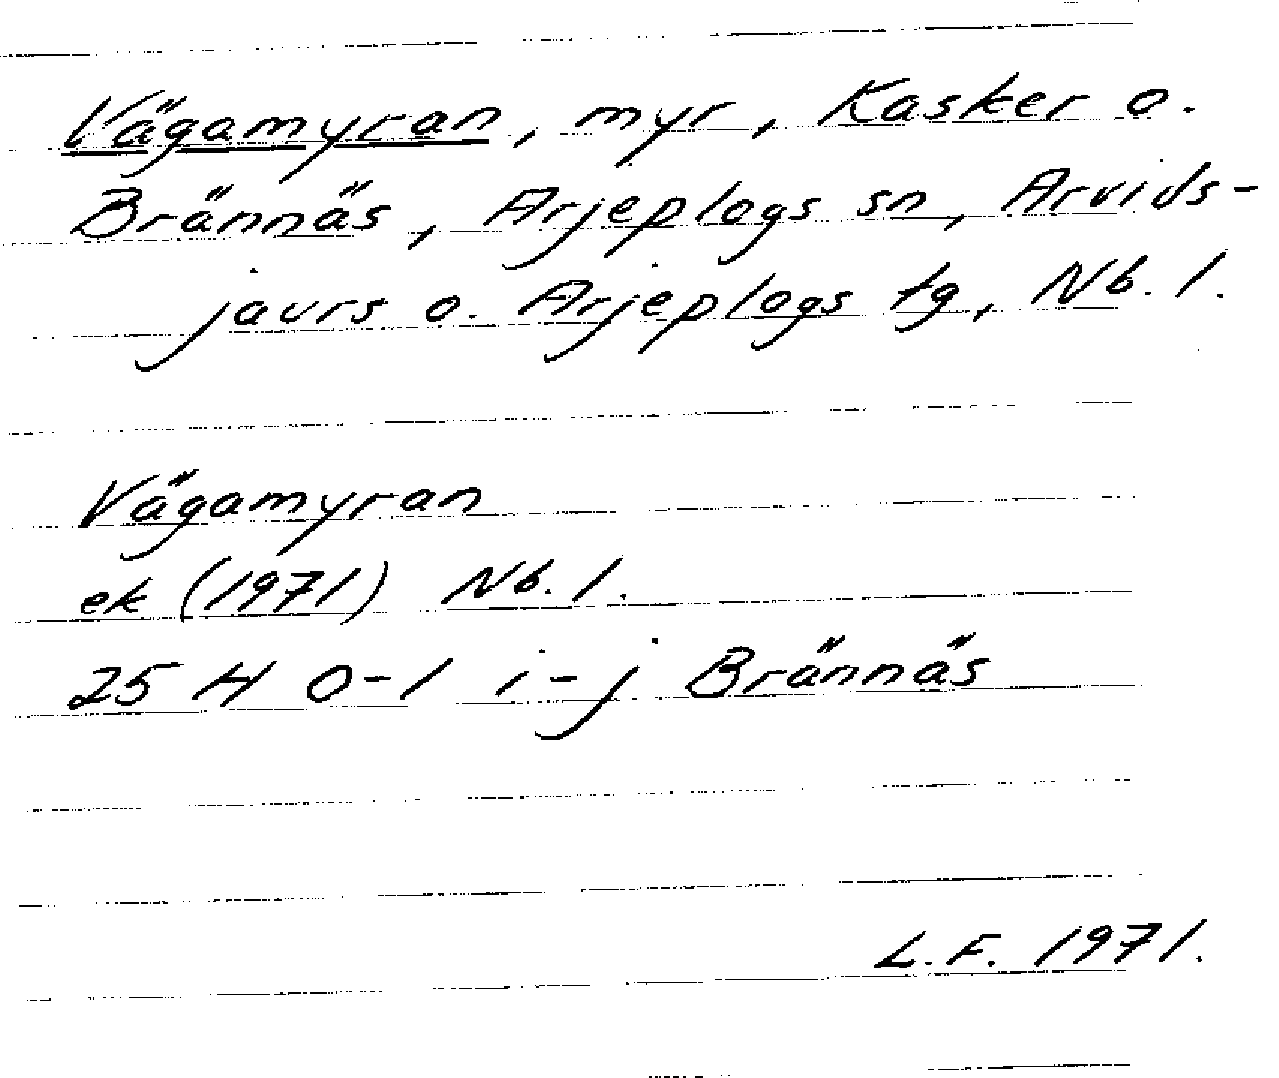 Vägamyran, myr, Kasker o.
Brännäs, Arjeplogs sn, Arvids-
jaurs o. Arjeplogs tg, Nb. l.
Vägamyran
ek (1971) Nb. l.
25 H 0-1 i-j Brännäs
L.F. 1971.